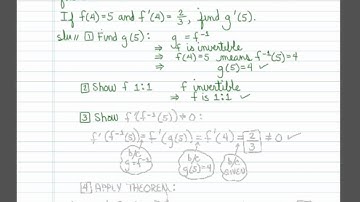 If f(4)=5 and f'(4)=2/3, find g'(5).
1 Find g(5): g = f⁻¹
⇒ f is invertible
⇒ f(4)=5 means f⁻¹(5)=4
⇒ g(5)=4 ✓
2 Show f 1:1 f invertible
⇒ f is 1:1 ✓
3 Show f'(f⁻¹(5)) ≠ 0:
f'(f⁻¹(5)) = f'(g(5)) = f'(4) = 2/3 ≠ 0 ✓
b/c g=f⁻¹
b/c g(5)=4
b/c GIVEN
4 APPLY THEOREM: